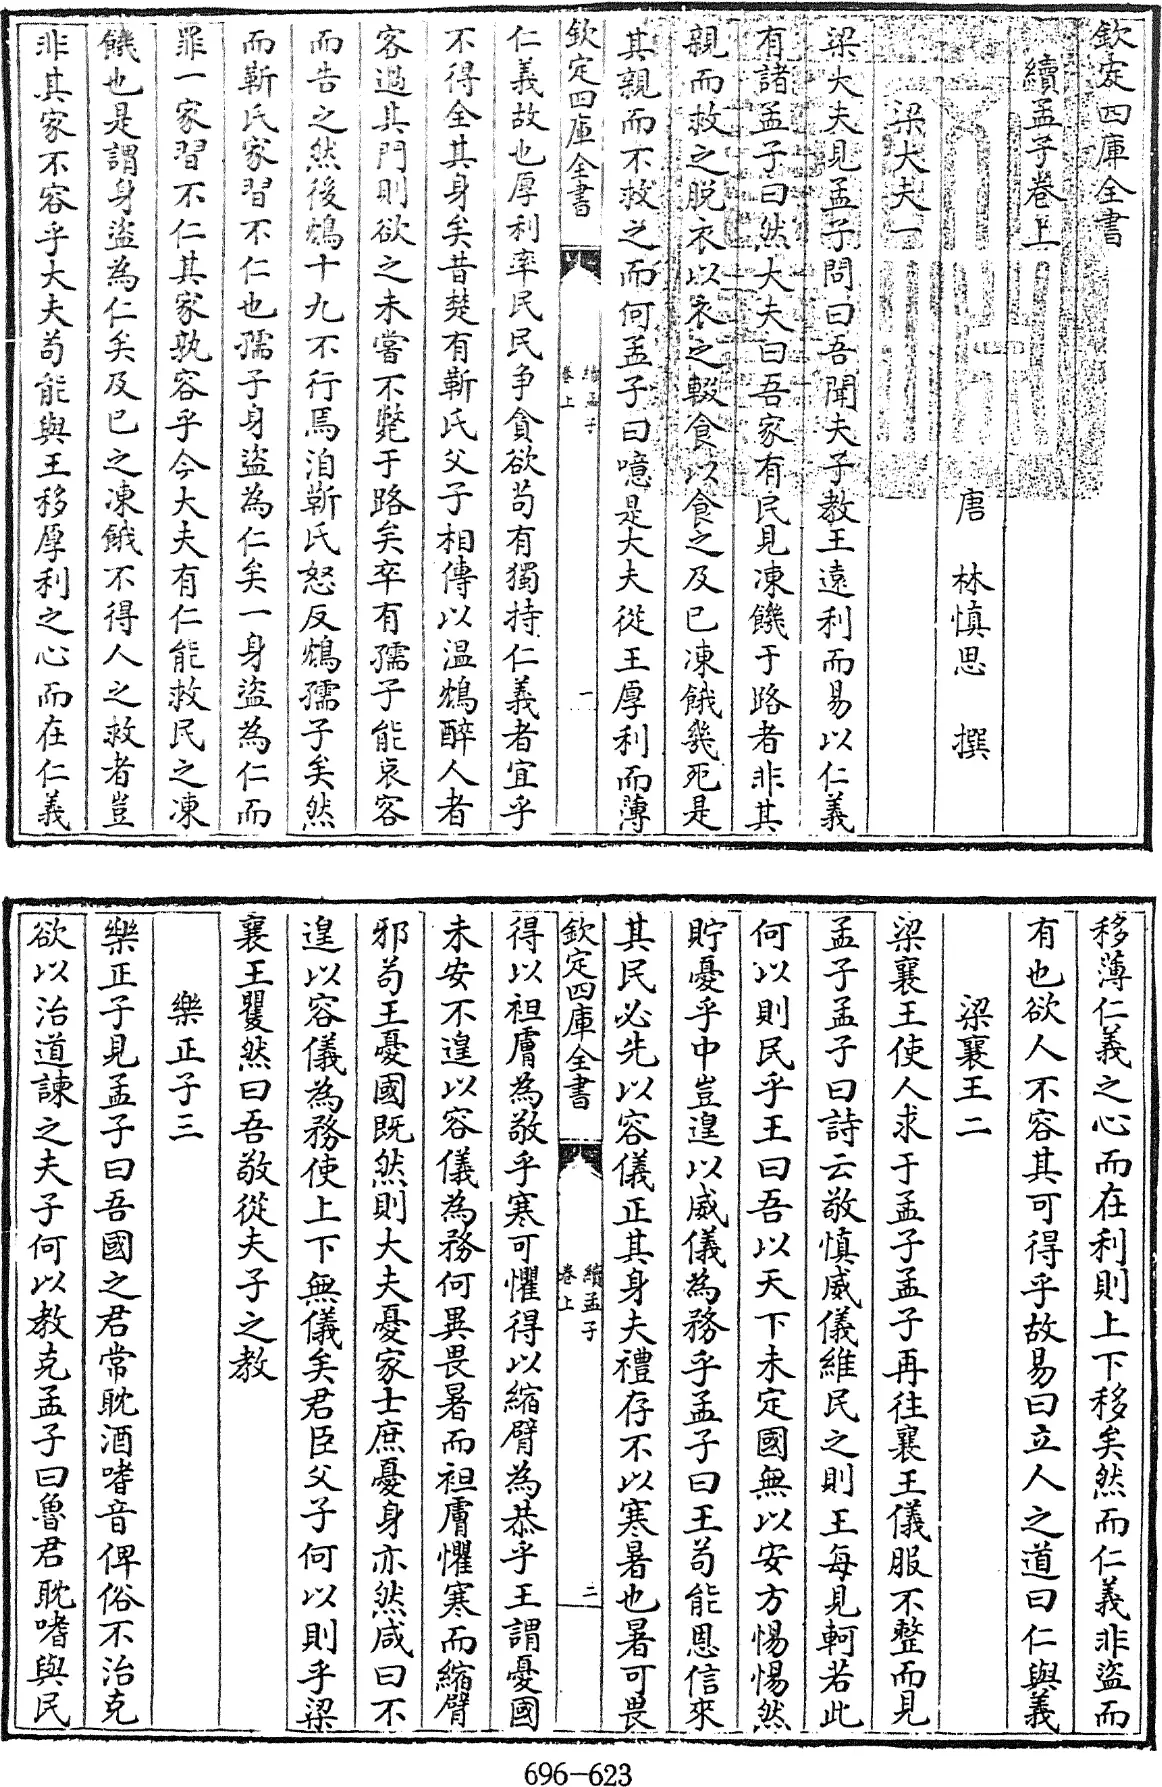 欽定四庫全書
續孟子卷上
唐 林慎思 撰
梁大夫一
梁大夫見孟子問曰吾聞夫子教王遠利而易以仁義
有諸孟子曰然大夫曰吾家有民見凍饑于路者非其
親而救之脱衣以衣之輟食以食之及已凍餓幾死是
其親而不救之而何孟子曰噫是大夫從王厚利而薄
欽定四庫全書
續孟子
卷上
一
仁義故也厚利率民民争貪欲苟有獨持仁義者宜乎
不得全其身矣昔楚有靳氏父子相傳以温鴆醉人者
客過其門則欲之未嘗不斃于路矣卒有孺子能哀客
而告之然後鴆十九不行焉洎靳氏怒反鴆孺子矣然
而靳氏家習不仁也孺子身盜為仁矣一身盜為仁而
罪一家習不仁其家孰容乎今大夫有仁能救民之凍
饑也是謂身盜為仁矣及已之凍餓不得人之救者豈
非其家不容乎大夫苟能與王移厚利之心而在仁義
移薄仁義之心而在利則上下移矣然而仁義非盜而
有也欲人不容其可得乎故易曰立人之道曰仁與義
梁襄王二
梁襄王使人求于孟子孟子再往襄王儀服不整而見
孟子孟子曰詩云敬慎威儀維民之則王每見軻若此
何以則民乎王曰吾以天下未定國無以安方惕惕然
貯憂乎中豈遑以威儀為務乎孟子曰王苟能恩信來
其民必先以容儀正其身夫禮存不以寒暑也暑可畏
欽定四庫全書
續孟子
卷上
二
得以袒膚為敬乎寒可懼得以縮臂為恭乎王謂憂國
未安不遑以容儀為務何異畏暑而袒膚懼寒而縮臂
邪苟王憂國既然則大夫憂家士庶憂身亦然咸曰不
遑以容儀為務使上下無儀矣君臣父子何以則乎梁
襄王瞿然曰吾敬從夫子之教
樂正子三
樂正子見孟子曰吾國之君常耽酒嗜音俾俗不治克
欲以治道諫之夫子何以教克孟子曰魯君耽嗜與民
696-623